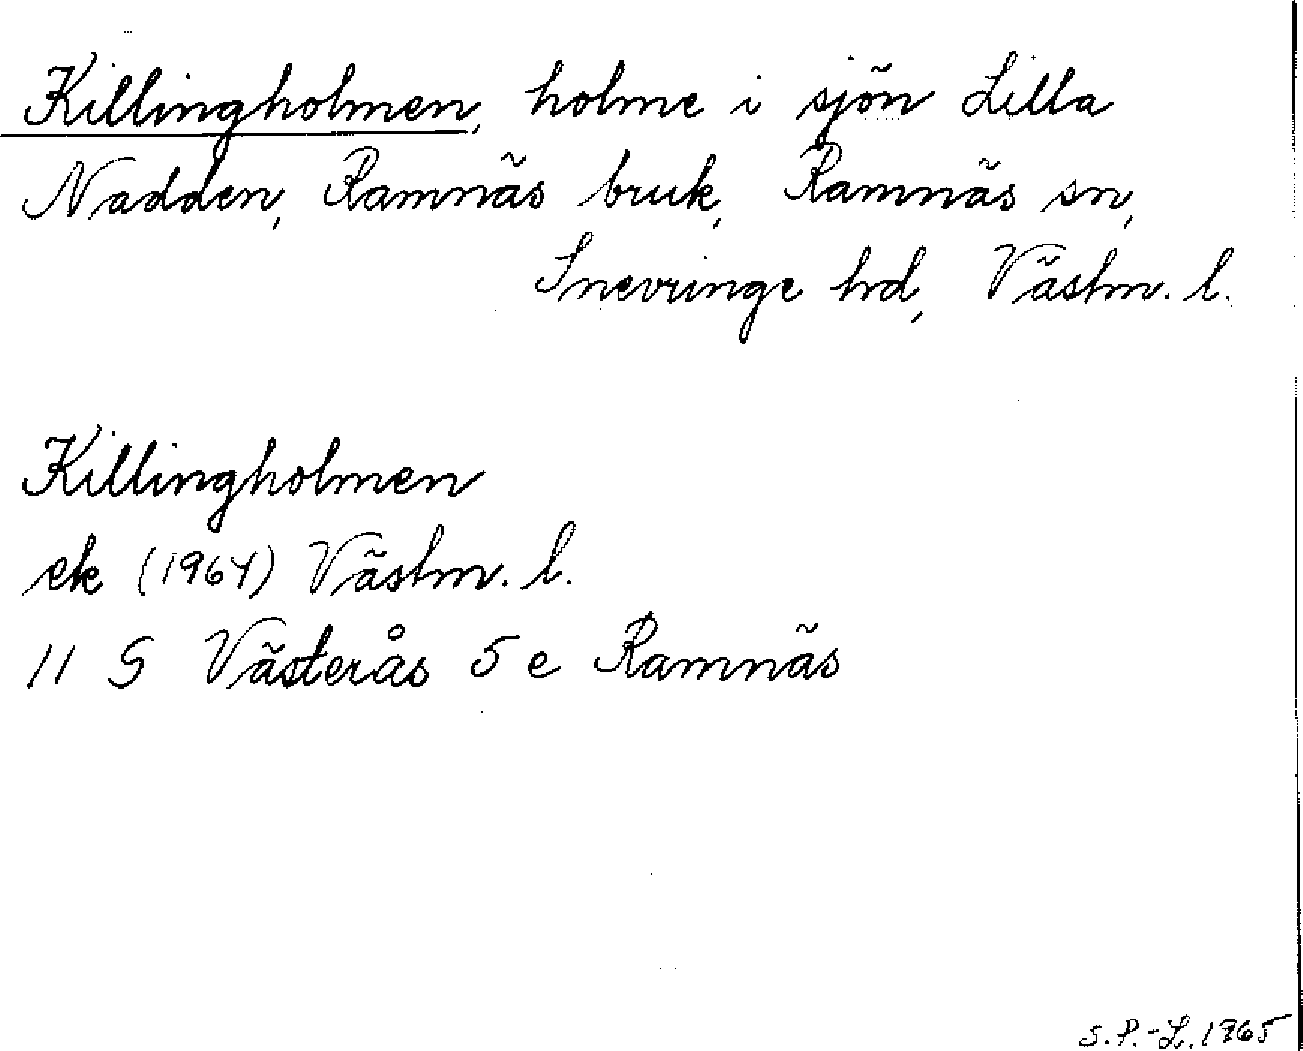 Killingholmen, holme i sjön Lilla
Nadden, Ramnäs bruk, Ramnäs sn,
Snevringe hd, Västm. l.
Killingholmen
ek (1964) Västm. l.
11 G Västerås 5 e Ramnäs
S. P.-L. 1965